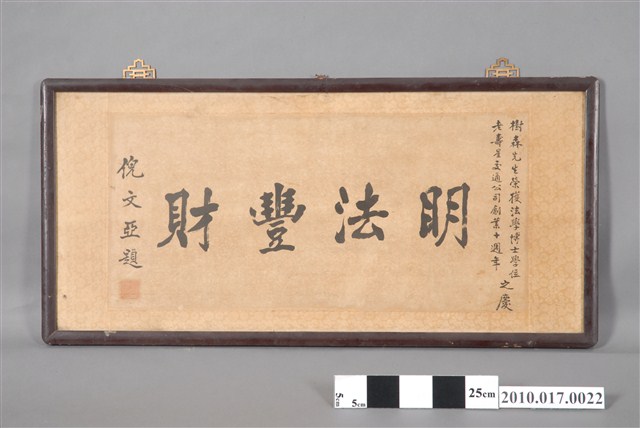 樹森先生榮獲法學博士學位
老壽星交通公司創業十週年
之慶
明法豐財
倪文亞題
5cm
5cm
25cm
2010.017.0022